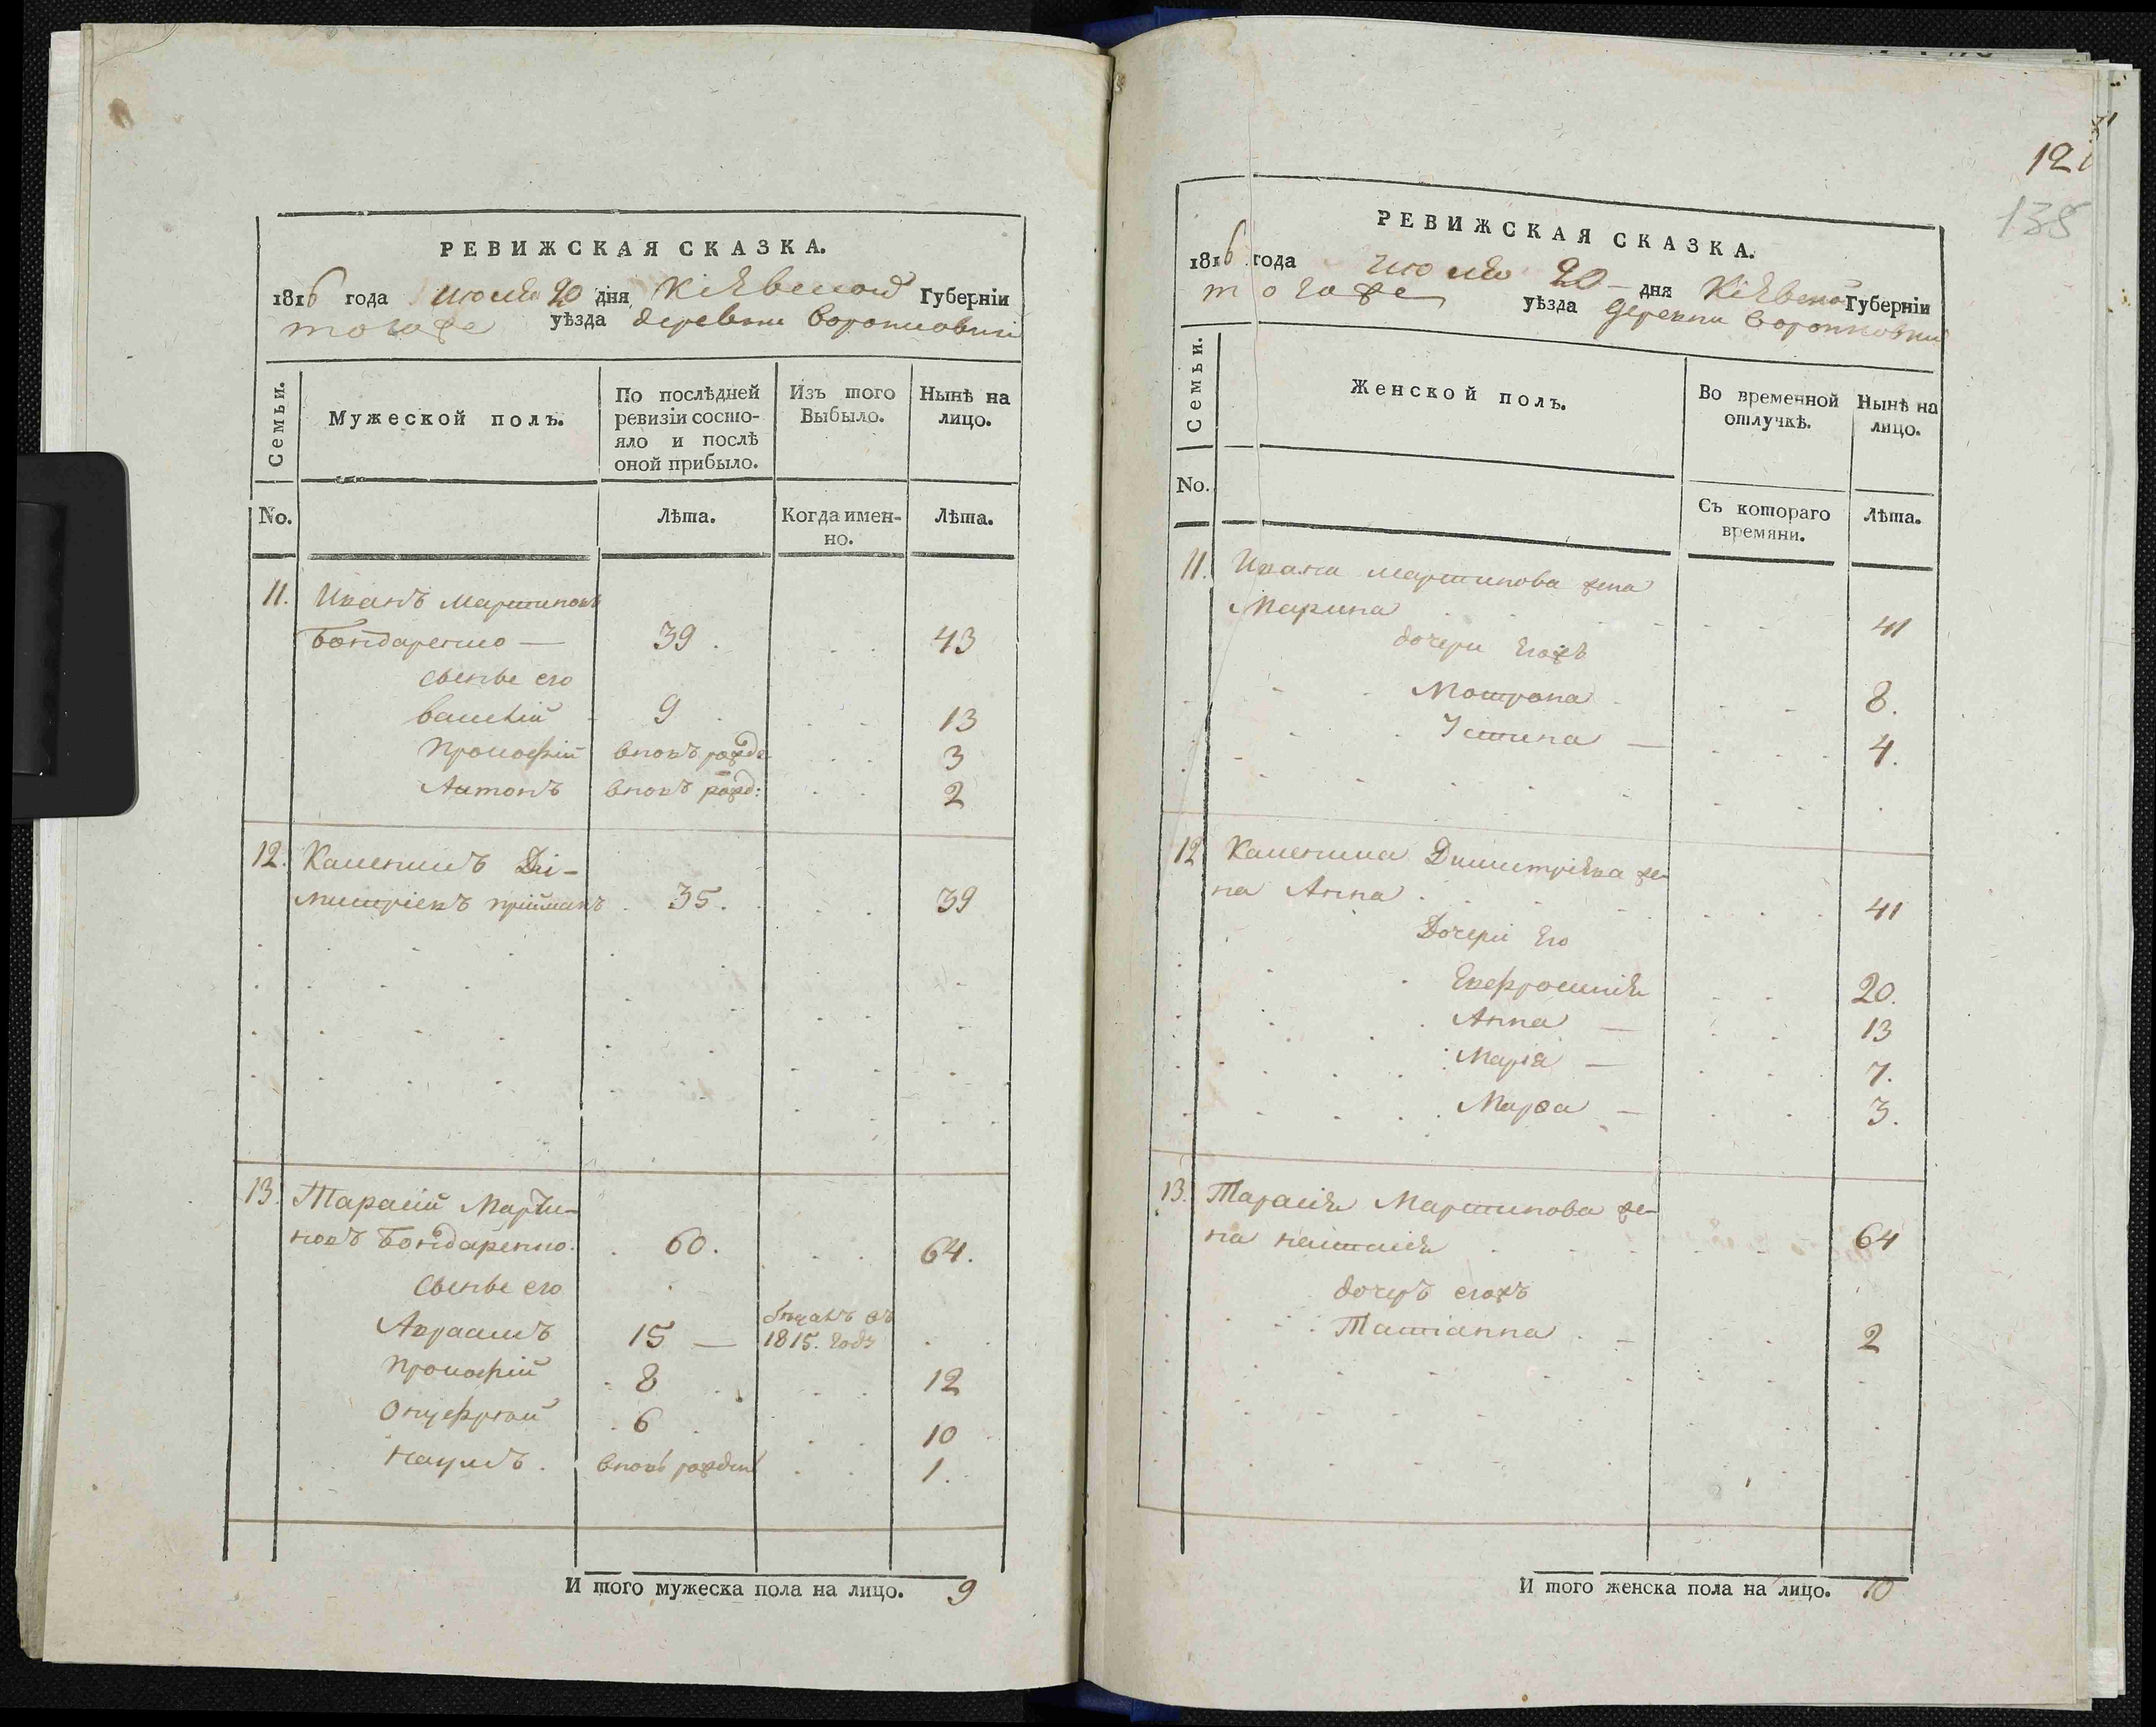 РЕВИЖСКАЯ СКАЗКА.
1816 года июля 20 дня Кіевской Губерніи
тогоже уѣзда деревни Воронковки
Семьи.
Мужеской полъ.
По послѣдней ревизіи состо-
яло и послѣ оной прибыло.
Изъ того Выбыло.
Нынѣ на лицо.
No.
Лѣта.
Когда имен-
но.
Лѣта.
11. Иванъ Мартиновъ
Бондаренко — 39. 43
Сынве его
Василій 9 13
Прокофій вновь рожд: 3
Антонъ вновь рожд: 2
12. Каленикъ Ди-
митріевъ приймакъ 35. 39
13. Тарасій Марти-
новъ Бондаренко. 60. 64.
Сынве его
Авраамъ 15 — въ 1815. годѣ
Прокофій 8 12
Онуфрій 6 10
Наумъ. вновь рожден 1.
И того мужеска пола на лицо. 9
121
138
РЕВИЖСКАЯ СКАЗКА.
1816 года июля 20 дня Кіевской Губерніи
тогоже уѣзда деревни Воронковки
Семьи.
Женской полъ.
Во временной отлучкѣ.
Нынѣ на лицо.
No.
Съ котораго времяни.
Лѣта.
11. Ивана Мартинова жена
Марина 41
дочери егожъ
Мотрона 8.
Устина — 4.
12 Каленика Димитріева же-
на Анна 41
Дочери Его
Евфросинія 20.
Анна — 13
Марія — 7.
Марѳа — 3.
13. Тарасія Мартинова же-
на 64
дочерь егожъ
Татіанна 2
И того женска пола на лицо. 10